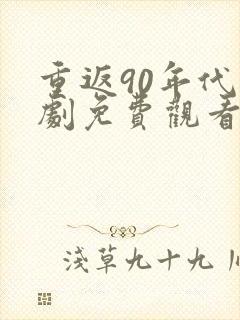 重返90年代
劇免費觀看
淺草九十九